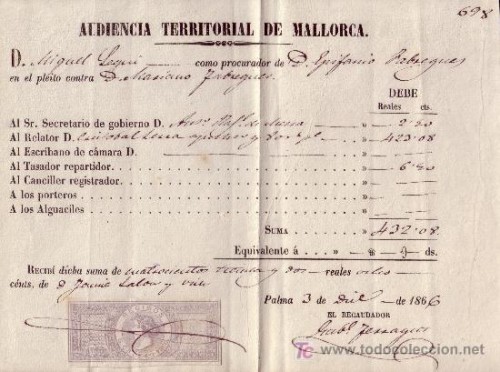 698
AUDIENCIA TERRITORIAL DE MALLORCA.
D. Miguel como procurador de D. Epifanio Fabregues
en el pléito contra D. Mariano Fabregues
DEBE
Reales cts.
Al Sr. Secretario de gobierno D. 2.20
Al Relator D. Cristobal Serra 423.08
Al Escribano de cámara D.
Al Tasador repartidor. 6.80
Al Canciller registrador.
A los porteros
A los Alguaciles
SUMA 432.08.
Equivalente á ds.
Recibí dicha suma de cuatrocientos treinta y dos reales ocho
cénts. de D. Jaume Salom y
Palma 3 de Dbre de 1866
EL RECAUDADOR
todocoleccion
www.todocoleccion.net